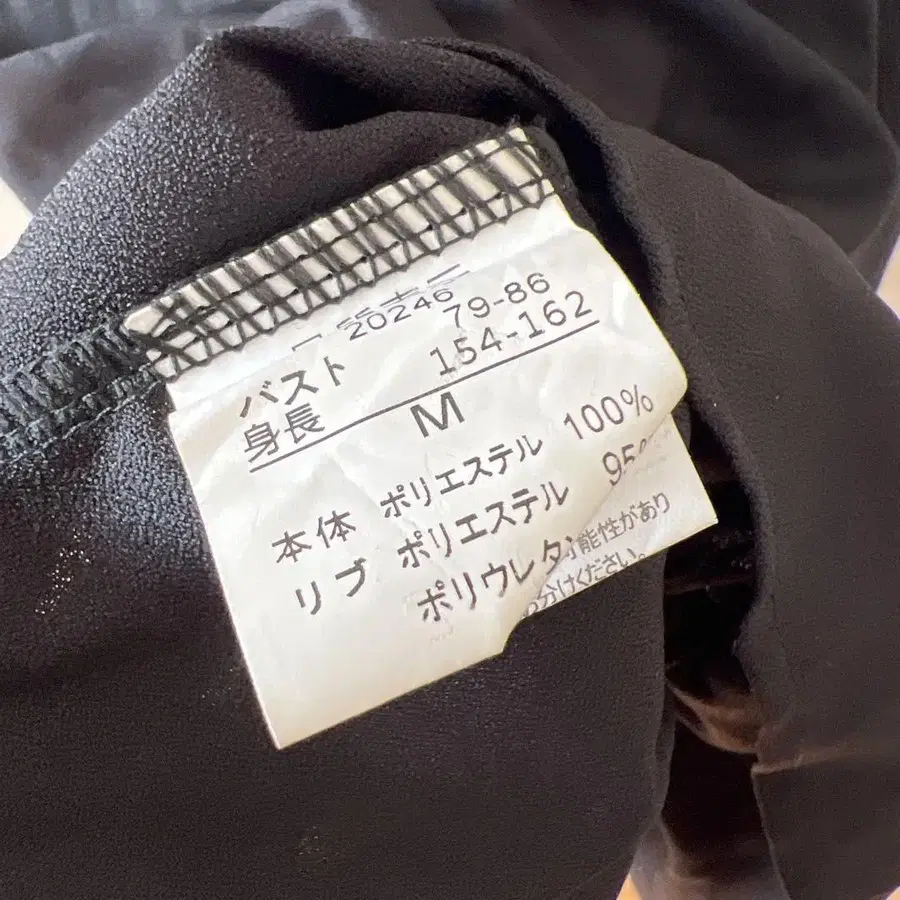 20246
バスト 79-86
身長 154-162
M
本体 ポリエステル 100%
リブ ポリエステル 95
ポリウレタン
能性があり
分けください。